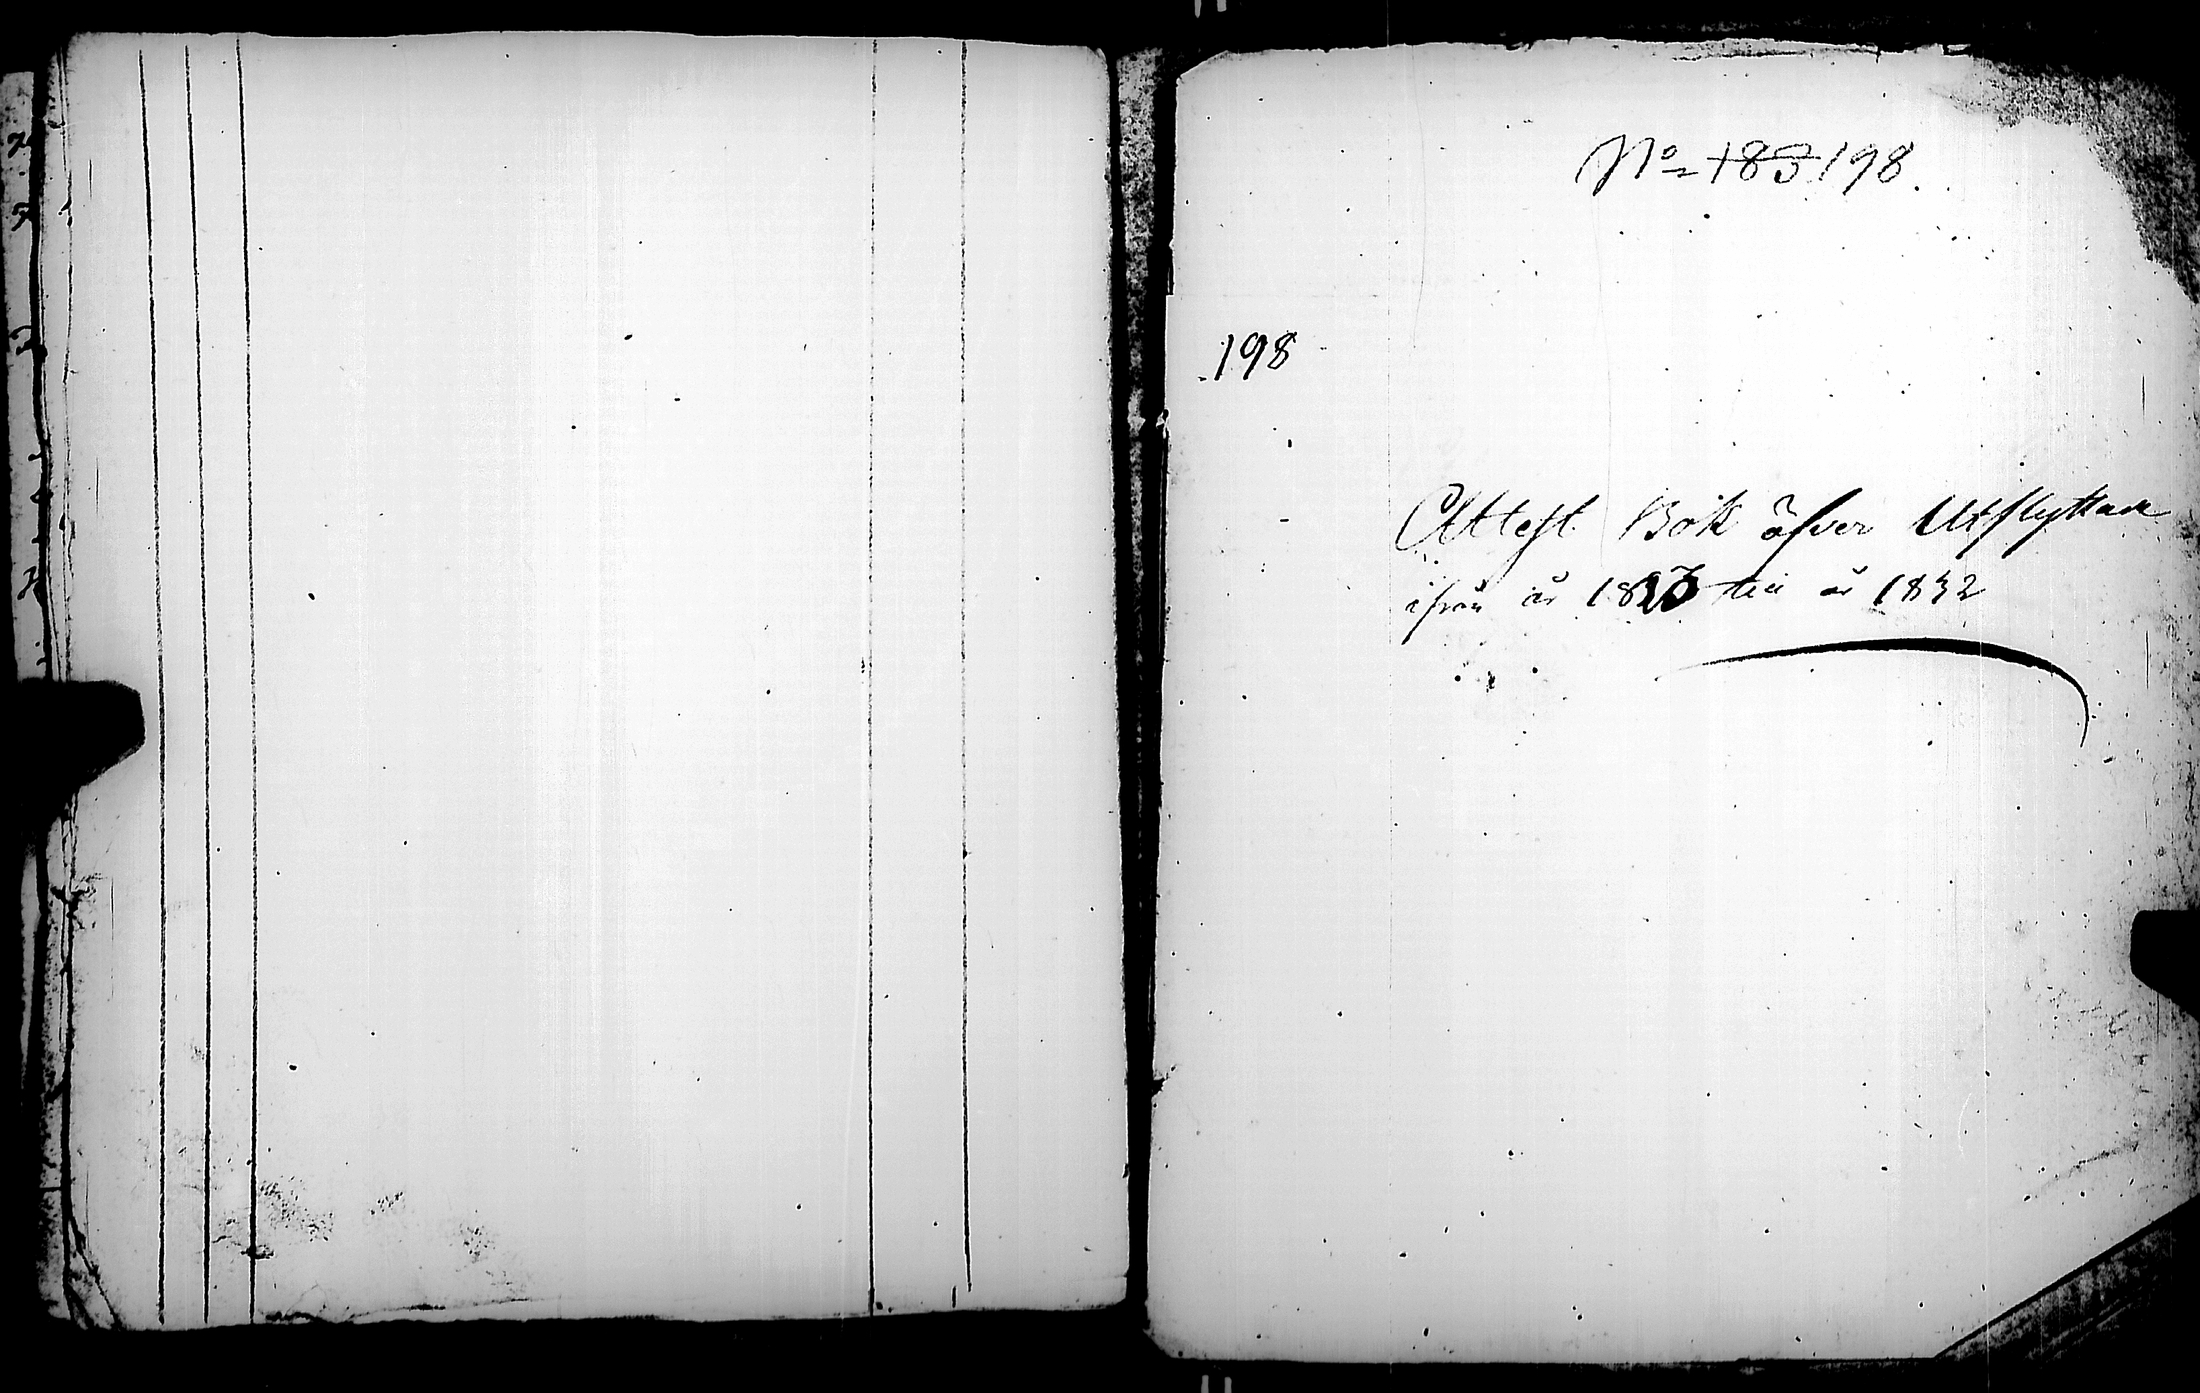 No 183 198.
198
Attest Bok öfver Utflyttade
ifrån år 1823 till år 1832